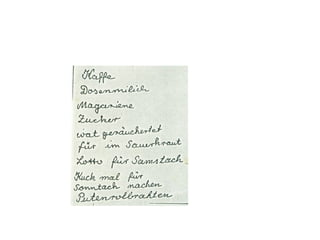 Kaffe
Dosenmilich
Magariene
Zucher
wat geräuchertet
für im Sauerkraut
Lotto für Samstach
Kuck mal für
Sonntach nachen
Putenrollbrahten